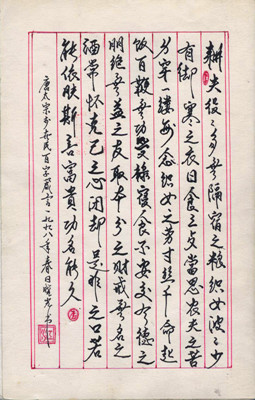 耕夫役々多無隔宿之糧織女波々少
有御寒之衣日食三歺當思农夫之苦
身穿一縷每念織女之劳寸絲千命匙
飯百鞭無功受祿寢食不安交有德之
朋絕無益之友取本分之財戒無名之
酒常懷克己之心閉却是非之口若
能依朕斯言富貴功名能久
唐太宗李世民百字箴言一九九八年春日書